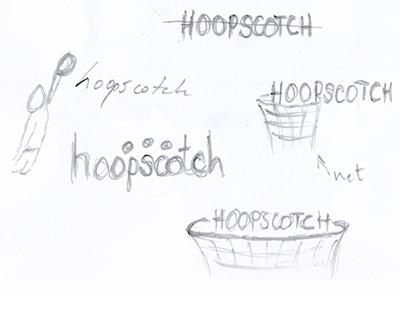 HOOPSCOTCH
hoopscotch
HOOPSCOTCH
hoopscotch
net
HOOPSCOTCH